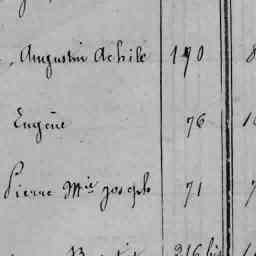 , Augustin Achile 190 8
Eugène 76 1
Pierre Mie Joseph 71 7
216 bis